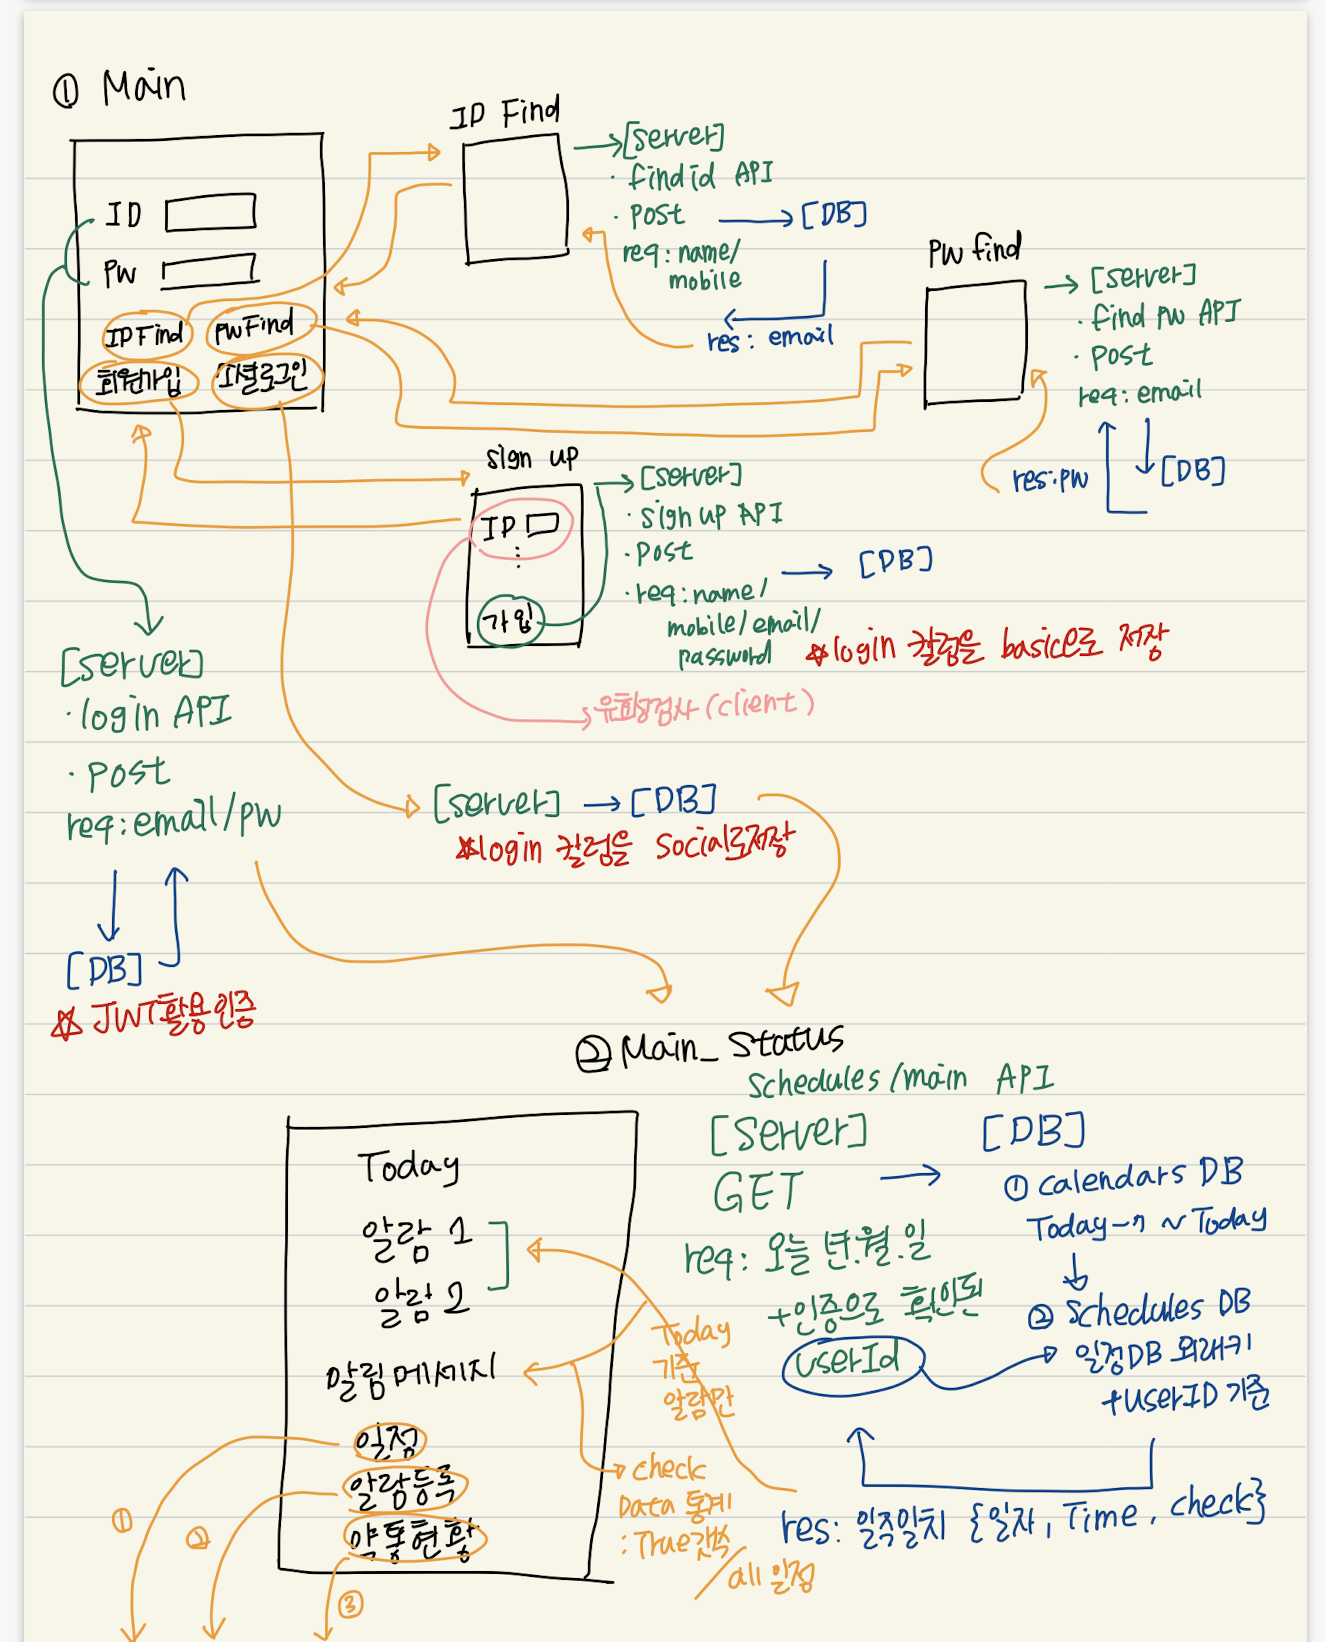 ① Main
ID
PW
ID Find
PW Find
회원가입
소셜로그인
ID Find
[server]
· find id API
· post
[DB]
req : name/
mobile
res : email
PW find
[server]
· find pw API
· post
req : email
res : pw
[DB]
sign up
ID
가입
[server]
· sign up API
· post
· req : name/
mobile/email/
password
[DB]
☆login 컬럼을 basic으로 저장
유효성검사 (client)
[server]
· login API
· post
req : email/pw
[DB]
☆ JWT활용인증
[server]
[DB]
☆login 컬럼을 social로저장
② Main_ Status
schedules/main API
[Server]
GET
req : 오늘 년.월.일
+인증으로 확인된
userId
[DB]
① calendars DB
Today-7 ~ Today
② Schedules DB
일정DB 외래키
+userID 기준
res : 일주일치 {일자, Time, check}
Today
알람 1
알람 2
알림메세지
일정
알람등록
약통현황
Today
기준
알람만
check
Data 통계
: True갯수
/all 일정
①
②
③